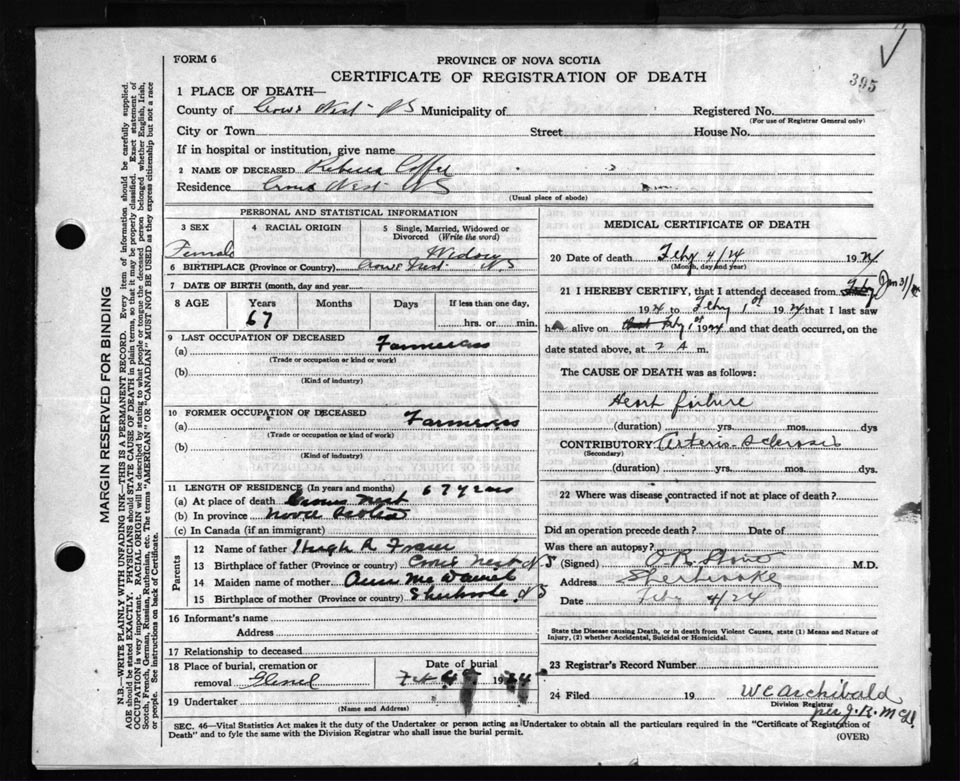 FORM 6
PROVINCE OF NOVA SCOTIA
CERTIFICATE OF REGISTRATION OF DEATH
395
1 PLACE OF DEATH—
County of Crows Nest N S Municipality of Registered No.
(For use of Registrar General only)
City or Town Street House No.
If in hospital or institution, give name
2 NAME OF DECEASED Rebecca
Residence Crows Nest N S
(Usual place of abode)
PERSONAL AND STATISTICAL INFORMATION
3 SEX 4 RACIAL ORIGIN 5 Single, Married, Widowed or Divorced (Write the word)
Female Widow
6 BIRTHPLACE (Province or Country) Crows Nest N S
7 DATE OF BIRTH (month, day and year)
8 AGE Years Months Days If less than one day
67 hrs. or min.
9 LAST OCCUPATION OF DECEASED Farmeress
(a)
(Trade or occupation or kind or work)
(b)
(Kind of industry)
10 FORMER OCCUPATION OF DECEASED Farmeress
(a)
(Trade or occupation or kind of work)
(b)
(Kind of industry)
11 LENGTH OF RESIDENCE (In years and months) 67 years
(a) At place of death Crows Nest
(b) In province Nova Scotia
(c) In Canada (if an immigrant)
Parents
12 Name of father Hugh R Fraser
13 Birthplace of father (Province or country) Crows Nest N S
14 Maiden name of mother Ann
15 Birthplace of mother (Province or country) Sherbrooke N S
16 Informant's name
Address
17 Relationship to deceased
18 Place of burial, cremation or removal Glenelg Date of burial
19 Undertaker
(Name and Address)
MEDICAL CERTIFICATE OF DEATH
20 Date of death Feby 4/24 1924
(Month, day and year)
21 I HEREBY CERTIFY, that I attended deceased from Jan 31/
1924 to Feby 1st 1924 that I last saw
her alive on Feby 1st 1924 and that death occurred, on the
date stated above, at 2 A m.
The CAUSE OF DEATH was as follows:
Heart failure
(duration) yrs. mos. dys
CONTRIBUTORY Arterio-Sclerosis
(Secondary)
(duration) yrs. mos. dys.
22 Where was disease contracted if not at place of death?
Did an operation precede death? Date of
Was there an autopsy?
(Signed) M.D.
Address Sherbrooke
Date Feby 4/24
State the Disease causing Death, or in death from Violent Causes, state (1) Means and Nature of Injury, (2) whether Accidental, Suicidal or Homicidal.
23 Registrar's Record Number
24 Filed 19 W C Archibald
Division Registrar
per J. B. McD
SEC. 46—Vital Statistics Act makes it the duty of the Undertaker or person acting as Undertaker to obtain all the particulars required in the "Certificate of Registration of
Death" and to fyle the same with the Division Registrar who shall issue the burial permit.
(OVER)
MARGIN RESERVED FOR BINDING
N.B.—WRITE PLAINLY WITH UNFADING INK—THIS IS A PERMANENT RECORD. Every item of information should be carefully supplied.
AGE should be stated EXACTLY. PHYSICIANS should STATE CAUSE OF DEATH in plain terms, so that it may be properly classified. Exact statement of
OCCUPATION is very important. RACIAL ORIGIN will be described by stating to what people or tongue the deceased person belonged whether English, Irish,
Scotch, French, German, Russian, Ruthenian, etc. The terms "AMERICAN" OR "CANADIAN" MUST NOT BE USED as they express citizenship but not a race
or people. See instructions on back of Certificate.